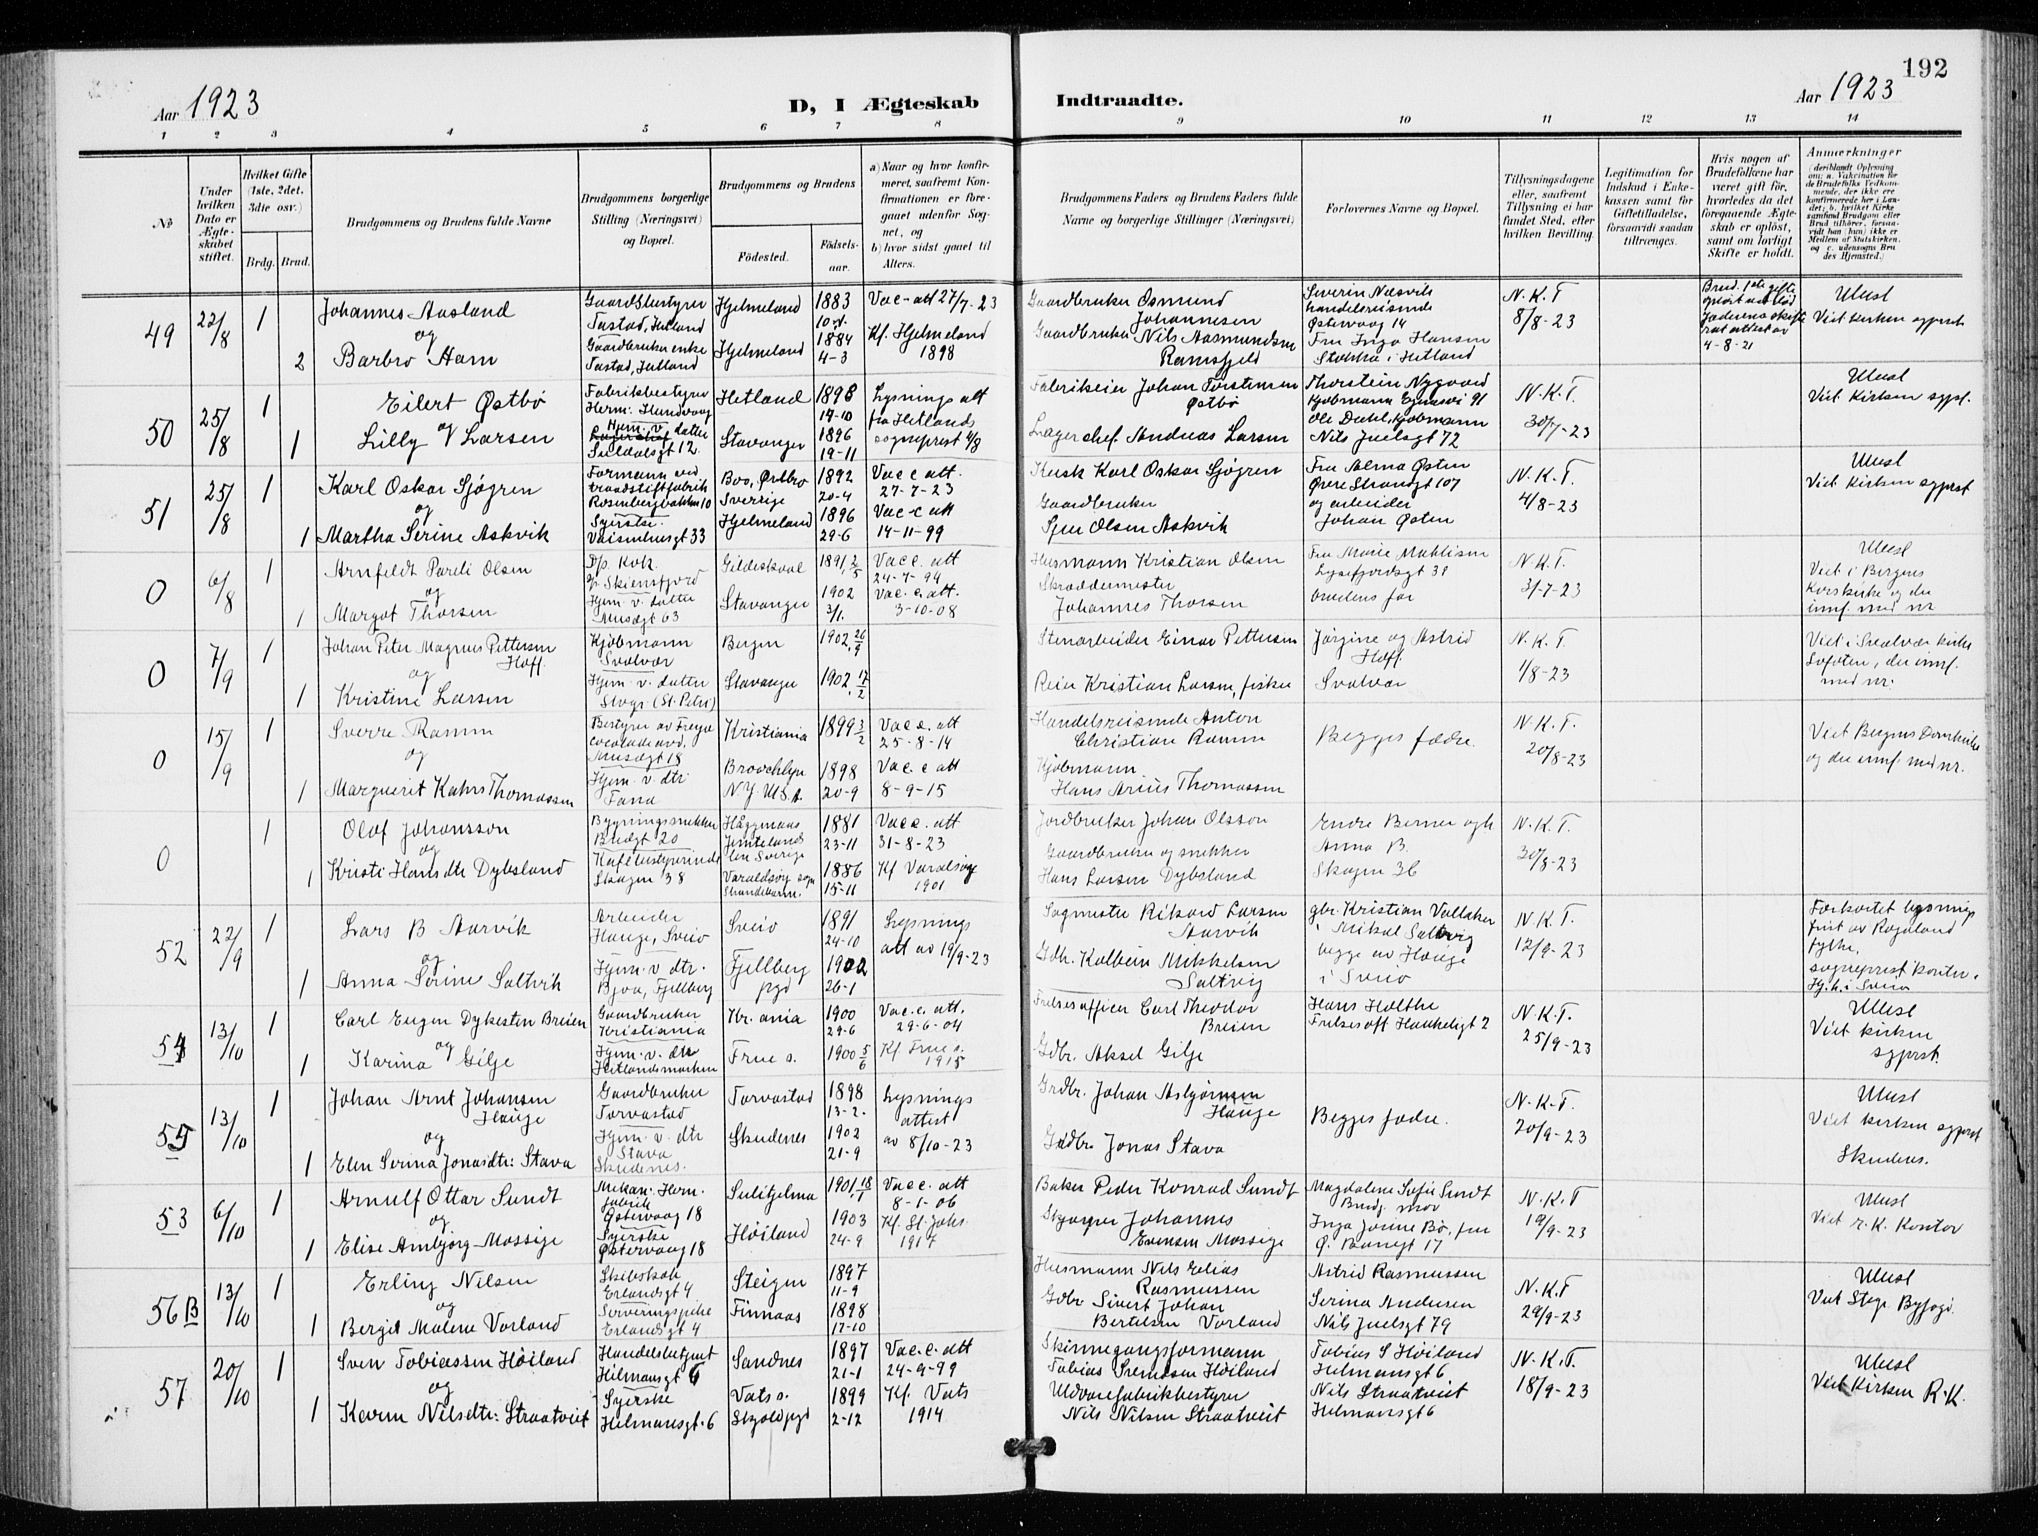 192
Aar 1923
D, I Ægteskab
Indtraadte.
Aar 1923
1 2 3 4 5 6 7 8
9 10 11 12 13 14
No
Under hvilken Dato er Ægteskabet stiftet.
Hvilket Gifte (1ste, 2det, 3die osv.)
Brdg. Brud.
Brudgommens og Brudens fulde Navne
Brudgommens borgerlige Stilling (Næringsvei) og Bopæl.
Brudgommens og Brudens
Födested.
Födselsaar.
a) Naar og hvor konfirmeret, saafremt Konfirmationen er foregaaet udenfor Sognet, og
b) hvor sidst gaaet til Alters.
Brudgommens Faders og Brudens Faders fulde Navne og borgerlige Stillinger (Næringsvei)
Forlovernes Navne og Bopæl.
Tillysningsdagene eller, saafremt Tillysning ei har fundet Sted, efter hvilken Bevilling.
Legitimation for Indskud i Enkekassen samt for Giftetilladelse, forsaavidt saadan tiltrænges.
Hvis nogen af Brudefolkene har været gift för, hvorledes da det foregaaende Ægteskab er oplöst, samt om lovligt Skifte er holdt.
Anmærkninger
49
22/8
1
Johannes Aasland
og
2
Barbro Ham
Gaardsbestyrer
Tastad, Hetland
Gaardbruker enke
Tastad, Hetland
Hjelmeland
Hjelmeland
1883
1884
4-3
Vac-att 27/7-23
Kf. Hjelmeland
1898
Gaardbruker Osmund
Johannesen
Gaardbruker Nils Aasmundsen
Ramsfjeld
Severin Næsvik
handelsreisende
Østervaag 14
Fru Inga Hansen
Stokka i Hetland
N.K.T
8/8-23
4-8-21
Ulest
Viet kirken sgprst
50
25/8
1
Eilert Østbø
og
1
Lilly Larsen
Fabrikbestyrer
Herm: Hundvaag
Hjem. v. datter
Suldalsgt 12
Hetland
Stavanger
1898
19-10
1896
19-11
Lysnings att
fra Hetlands
sogneprest 4/8
Fabrikeier Johan Torstensen
Østbø
Lagerchef Andreas Larsen
Thorstein Nygaard
Kjøbmann
Ole Dahl, Kjøbmann
Nils Juelsgt 72
N.K.T.
30/7-23
Ulest
Viet Kirken sgpst.
51
25/8
1
Karl Oskar Sjögren
og
1
Martha Serine Askvik
Formann ved
traadstiftfabrik
Rosenbergbakken 10
Syerske
Vaisenhusgt 33
Boo, Örebro
Sverige
Hjelmeland
1892
20-4
1896
29-6
Vacc att.
27-7-23
Vac-c att
14-11-99
Kusk Karl Oskar Sjögren
Gaardbruker
Olsen Askvik
Fru Alma Østen
Øvre Strandgt 107
og arbeider
Johan Østen
N.K.T.
4/8-23
Ulest
Viet Kirken sgprst
0
6/8
1
Arnfeldt Pareli Olsen
og
1
Margot Thorsen
D/p. Kok
D/p. Skiensfjord
Hjem. v. datter
Musægt 63
Gildeskaal
Stavanger
1891, 2/5
1902
3/1.
Vacc. att
24-7-94
Vac. c. att.
3-10-08
Husmann Kristian Olsen
Skræddermester
Johannes Thorsen
Fru Marie Mathisen
Lysefjordsgt 31
brudens far
N.K.T.
31-7-23
Ulest
Viet i Bergens
Korskirke og der
innf. med nr
0
7/9
1
Johan Peter Magnus Pettersen
Hoff
og
1
Kristine Larsen
Kjøbmann
Svolvær
Hjem. v. datter
Stvgr (St. Petri)
Bergen
Stavanger
1902, 26/9
1902, 17/2
Stenarbeider Einar Pettersen
Reier Kristian Larsen, fisker
Jørgine og Astrid
Hoff
Svolvær
N.K.T.
1/8-23
Viet i Svolvær kirke
Lofoten, der innf.
med nr.
0
15/9
1
Sverre Ramm
og
1
Marguerit Kahrs Thomassen
Bestyrer av Freya
cocoladeavd.
Musægt 18
Hjem. v. dtr
Fana
Kristiania
Broocklyn
N.Y. U.S.A.
1899 3/2
1898
20-9
Vac c. att
25-8-14
Vac. c att
8-9-15
Handelsreisende Anton
Christian Ramm
Kjøbmann
Hans Arius Thomassen
Begges fædre.
N.K.T.
20/8-23
Viet Bergens Domkirke
og der innf. med nr.
0
1
Olaf Johansson
og
1
Kristi Hansdtr Dybsland
Bygningssnekker
Bredgt 20
Kafebestyrerinde
Skagen 38
Häggenaas
Jemtelands
len Sverige
Varaldsøy sogn
Strandebarm.
1881
23-11
1886
15-11
Vacc. att
31-8-23
Kf Varalsøy
1901
Jordbruker Johan Olsson
Gaardbruker og snekker
Hans Larsen Dybsland
Endre Berner og h
Anna B.
Skagen 36
N.K.T.
30/8-23
52
22/9
1
Lars B Aarvik
og
1
Anna Serine Saltvik
Arbeider
Hauge, Sveio
Hjem. v. dtr.
Bjoa, Fjellberg
Sveio
Fjellberg
pgd
1891
24-10
1902
26-1
Lysnings
att av 19/9-23
Sagmester Rikard Larsen
Aarvik
Gdbr. Kolbein Mikkelsen
Saltvig
gbr. Kristian Vallaker
Mikal Saltvig
begge av Hauge
i Sveio
N.K.T.
12/9-23
Forkortet lysnings
frist av Rogaland
fylke.
sogneprest kontor.
Hj.h. i Sveio
54
13/10
1
Carl Eugen Dykesten Breien
og
1
Karina Gilje
Gaardbruker
Kristiania
Hjem. v. dtr
Hetlandsmarken
Kr.ania
Frue s.
1900
29-6
1900 5/6
Vac. c. att.
29-6-04
Kf Frue s.
1915
Frelsesofficer Carl Theodor
Breien
Gdbr. Aksel Gilje
Hans Holthe
Frelsesoff Haukeligt 2
N.K.T.
25/9-23
Ulest
Viet kirken
sgprst.
55
13/10
1
Johan Arnt Johansen
Hauge
og
1
Elen Serina Jonasdtr: Stava
Gaardbruker
Torvastad
Hjem. v. dtr
Stava
Skudenes.
Torvastad
Skudenes
1898
13-2.
1902
21-9
Lysnings
attest
av 8/10-23
Grdbr. Johan Asbjørnsen
Hauge
Grdbr. Jonas Stava
Begges fædre.
N.K.T.
20/9-23
Ulest
Viet kirken sgprst
Skudenes.
53
6/10
1
Arnulf Ottar Sundt
og
1
Elise Ambjørg Mossige
Mekan. Herm.
fabrik
Østervaag 18
Syerske
Østervaag 18
Sulitjelma
Høiland
1901, 18/1
1903
24-9
Vac c. att
8-1-06
Kf. St. Joh.
1917
Baker Peder Konrad Sundt
Johannes
Evensen Mossige
Magdalene Sofie Sundt
Brudg. mor
Inga Jorine Bø, fru
N.K.T
19/9-23
Ulest
Viet r.K. Kontor
56 B
13/10
1
Erling Nilsen
og
1
Bergit Malene Vorland
Skibskok
Erlandsgt 4
Serveringspike
Erlandsgt 4
Steigen
Finnaas
1897
11-9
1898
17-10
Husmann Nils Elias
Rasmussen
Gdbr Sivert Johan
Bertelsen Vorland
Astrid Rasmussen
Serina Andersen
Nils Juelsgt 79
N.K.T
29/9-23
Ulest
Viet Stvgr Byfogd.
57
20/10
1
Sven Tobiassen Høiland
og
1
Karen Nilsdtr: Straatveit
Handelsbetjent
Hilmansgt 6
Syerske
Helmansgt. 6
Sandnes
Vats s.
Skjoldpgd
1897
21-1
1899
2-12
Vac. c. att
24-9-99
Kf. Vats
1914
Skinnegangsformann
Tobias Svendsen Høiland
Uldvarefabrikbestyrer
Nils Nilsen Straatveit
Tobias S Høiland
Helmansgt 6
Nils Straatveit
Helmansgt 6
N.K.T.
18/9-23
Ulest
Viet Kirken R.K.